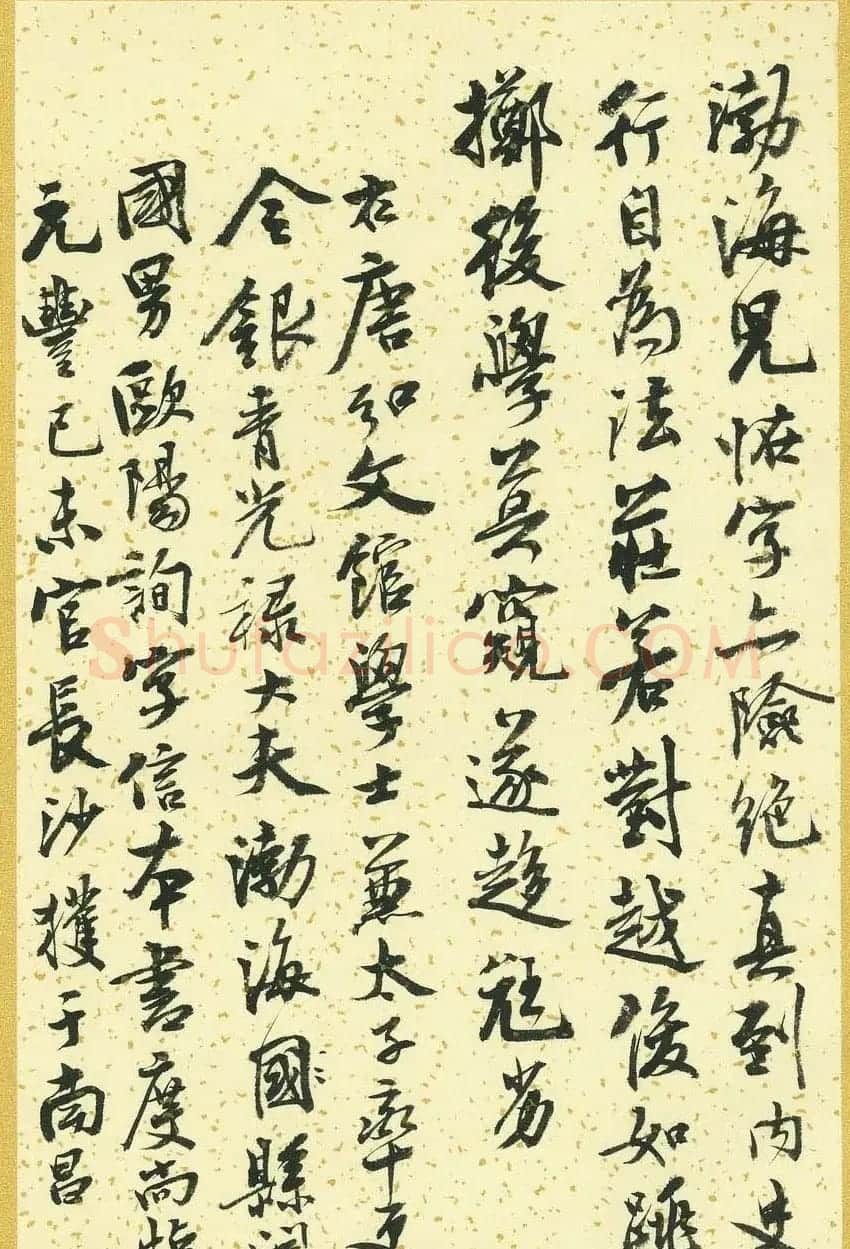 渤海光怪字亦險絶真到内史
行自為法莊若對越俊如跳
擲後學莫窺遂趍尪劣
右唐弘文館學士兼太子率更
令銀青光禄大夫渤海國縣開
國男歐陽詢字信本書度尚帖
元豐己未官長沙獲于南昌
Shufaziliao.COM